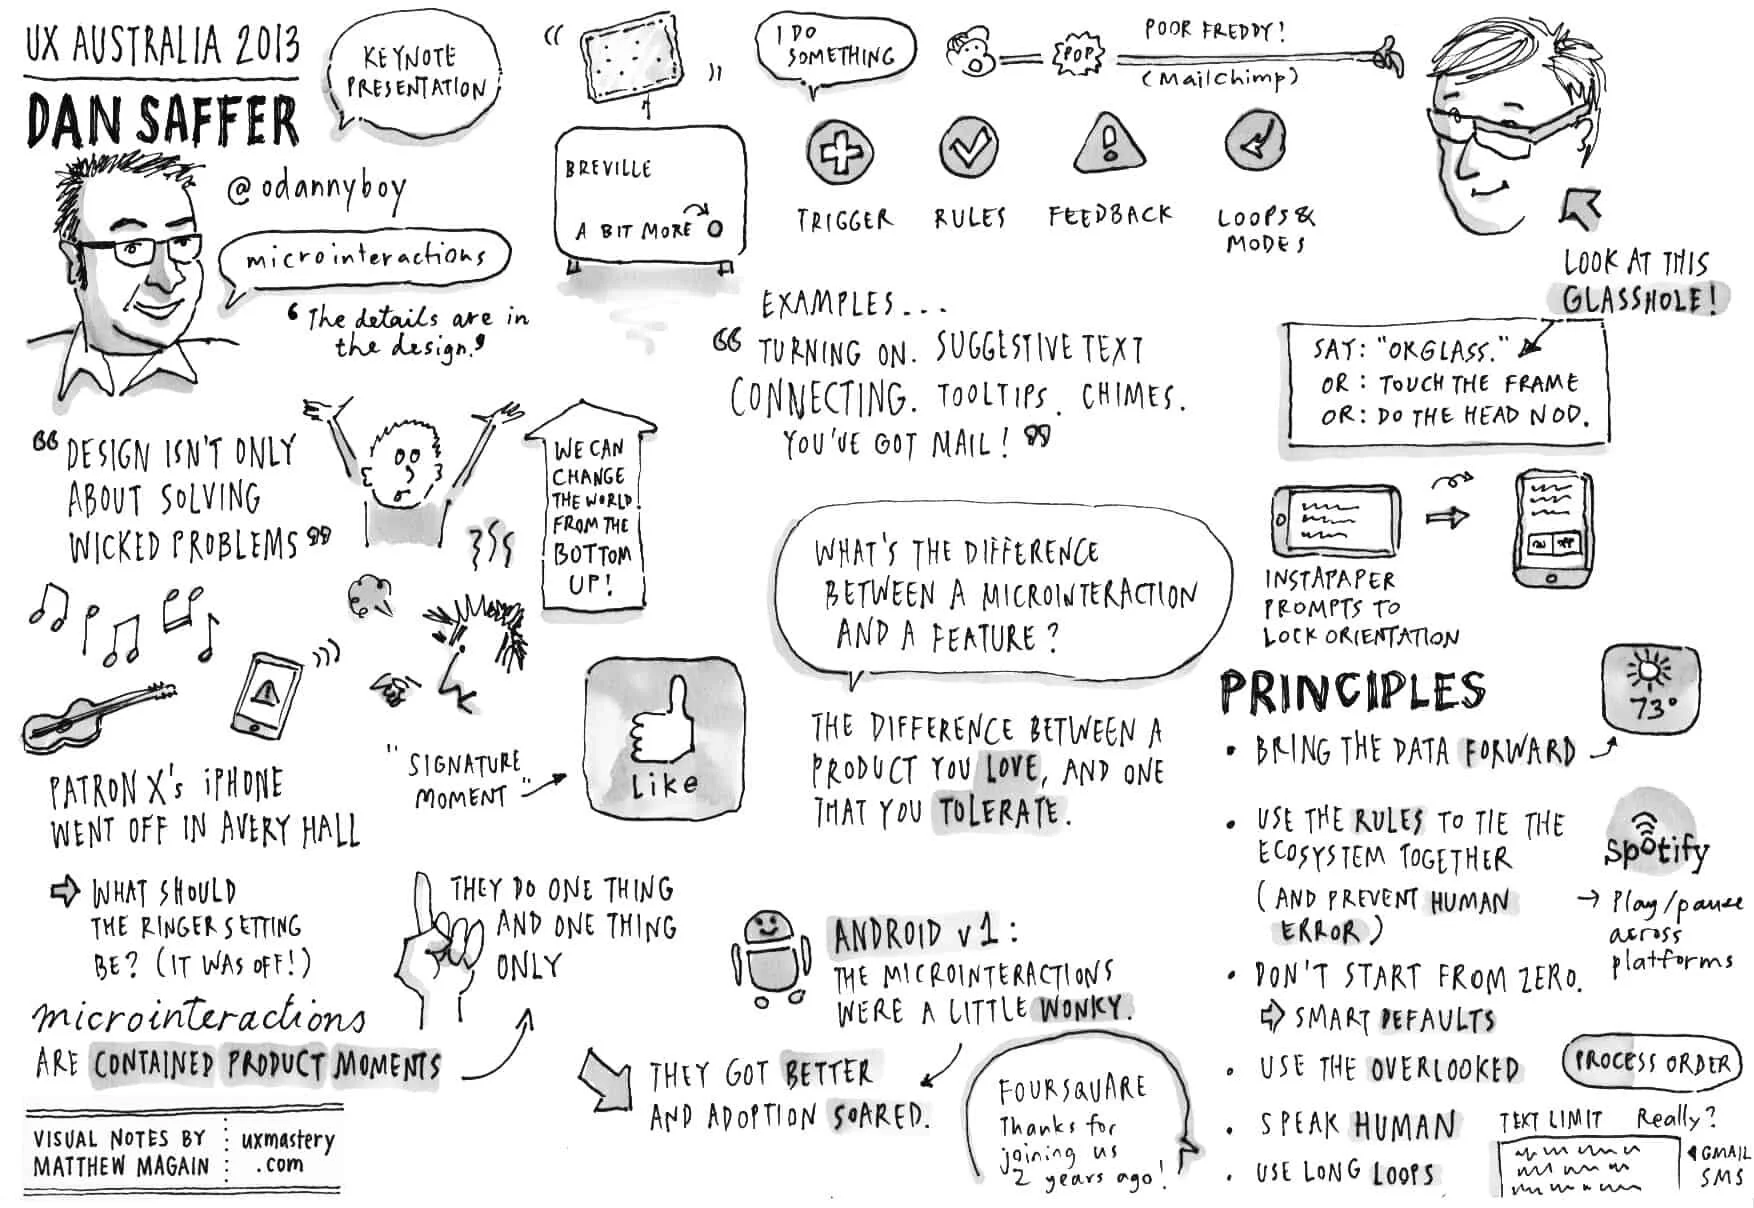 UX AUSTRALIA 2013
DAN SAFFER
KEYNOTE
PRESENTATION
@odannyboy
microinteractions
"The details are in
the design."
BREVILLE
A BIT MORE
I DO
SOMETHING
POP
POOR FREDDY!
(Mailchimp)
TRIGGER
RULES
FEEDBACK
LOOPS &
MODES
LOOK AT THIS
GLASSHOLE!
SAY: "OKGLASS."
OR: TOUCH THE FRAME
OR: DO THE HEAD NOD.
EXAMPLES...
"TURNING ON. SUGGESTIVE TEXT
CONNECTING. TOOLTIPS. CHIMES.
YOU'VE GOT MAIL!"
"DESIGN ISN'T ONLY
ABOUT SOLVING
WICKED PROBLEMS"
WE CAN
CHANGE
THE WORLD!
FROM THE
BOTTOM
UP!
WHAT'S THE DIFFERENCE
BETWEEN A MICROINTERACTION
AND A FEATURE?
THE DIFFERENCE BETWEEN A
PRODUCT YOU LOVE, AND ONE
THAT YOU TOLERATE.
INSTAPAPER
PROMPTS TO
LOCK ORIENTATION
PATRON X's iPHONE
WENT OFF IN AVERY HALL
WHAT SHOULD
THE RINGER SETTING
BE? (IT WAS OFF!)
"SIGNATURE
MOMENT"
Like
microinteractions
ARE CONTAINED PRODUCT MOMENTS
THEY DO ONE THING
AND ONE THING
ONLY
ANDROID v1:
THE MICROINTERACTIONS
WERE A LITTLE WONKY.
THEY GOT BETTER
AND ADOPTION SOARED.
FOURSQUARE
Thanks for
joining us
2 years ago!
PRINCIPLES
73°
• BRING THE DATA FORWARD
• USE THE RULES TO TIE THE
ECOSYSTEM TOGETHER
(AND PREVENT HUMAN
ERROR)
Spotify
→ Play/pause
across
platforms
• DON'T START FROM ZERO.
SMART DEFAULTS
• USE THE OVERLOOKED
PROCESS ORDER
• SPEAK HUMAN
• USE LONG LOOPS
TEXT LIMIT Really?
GMAIL
SMS
VISUAL NOTES BY
MATTHEW MAGAIN
uxmastery
.com